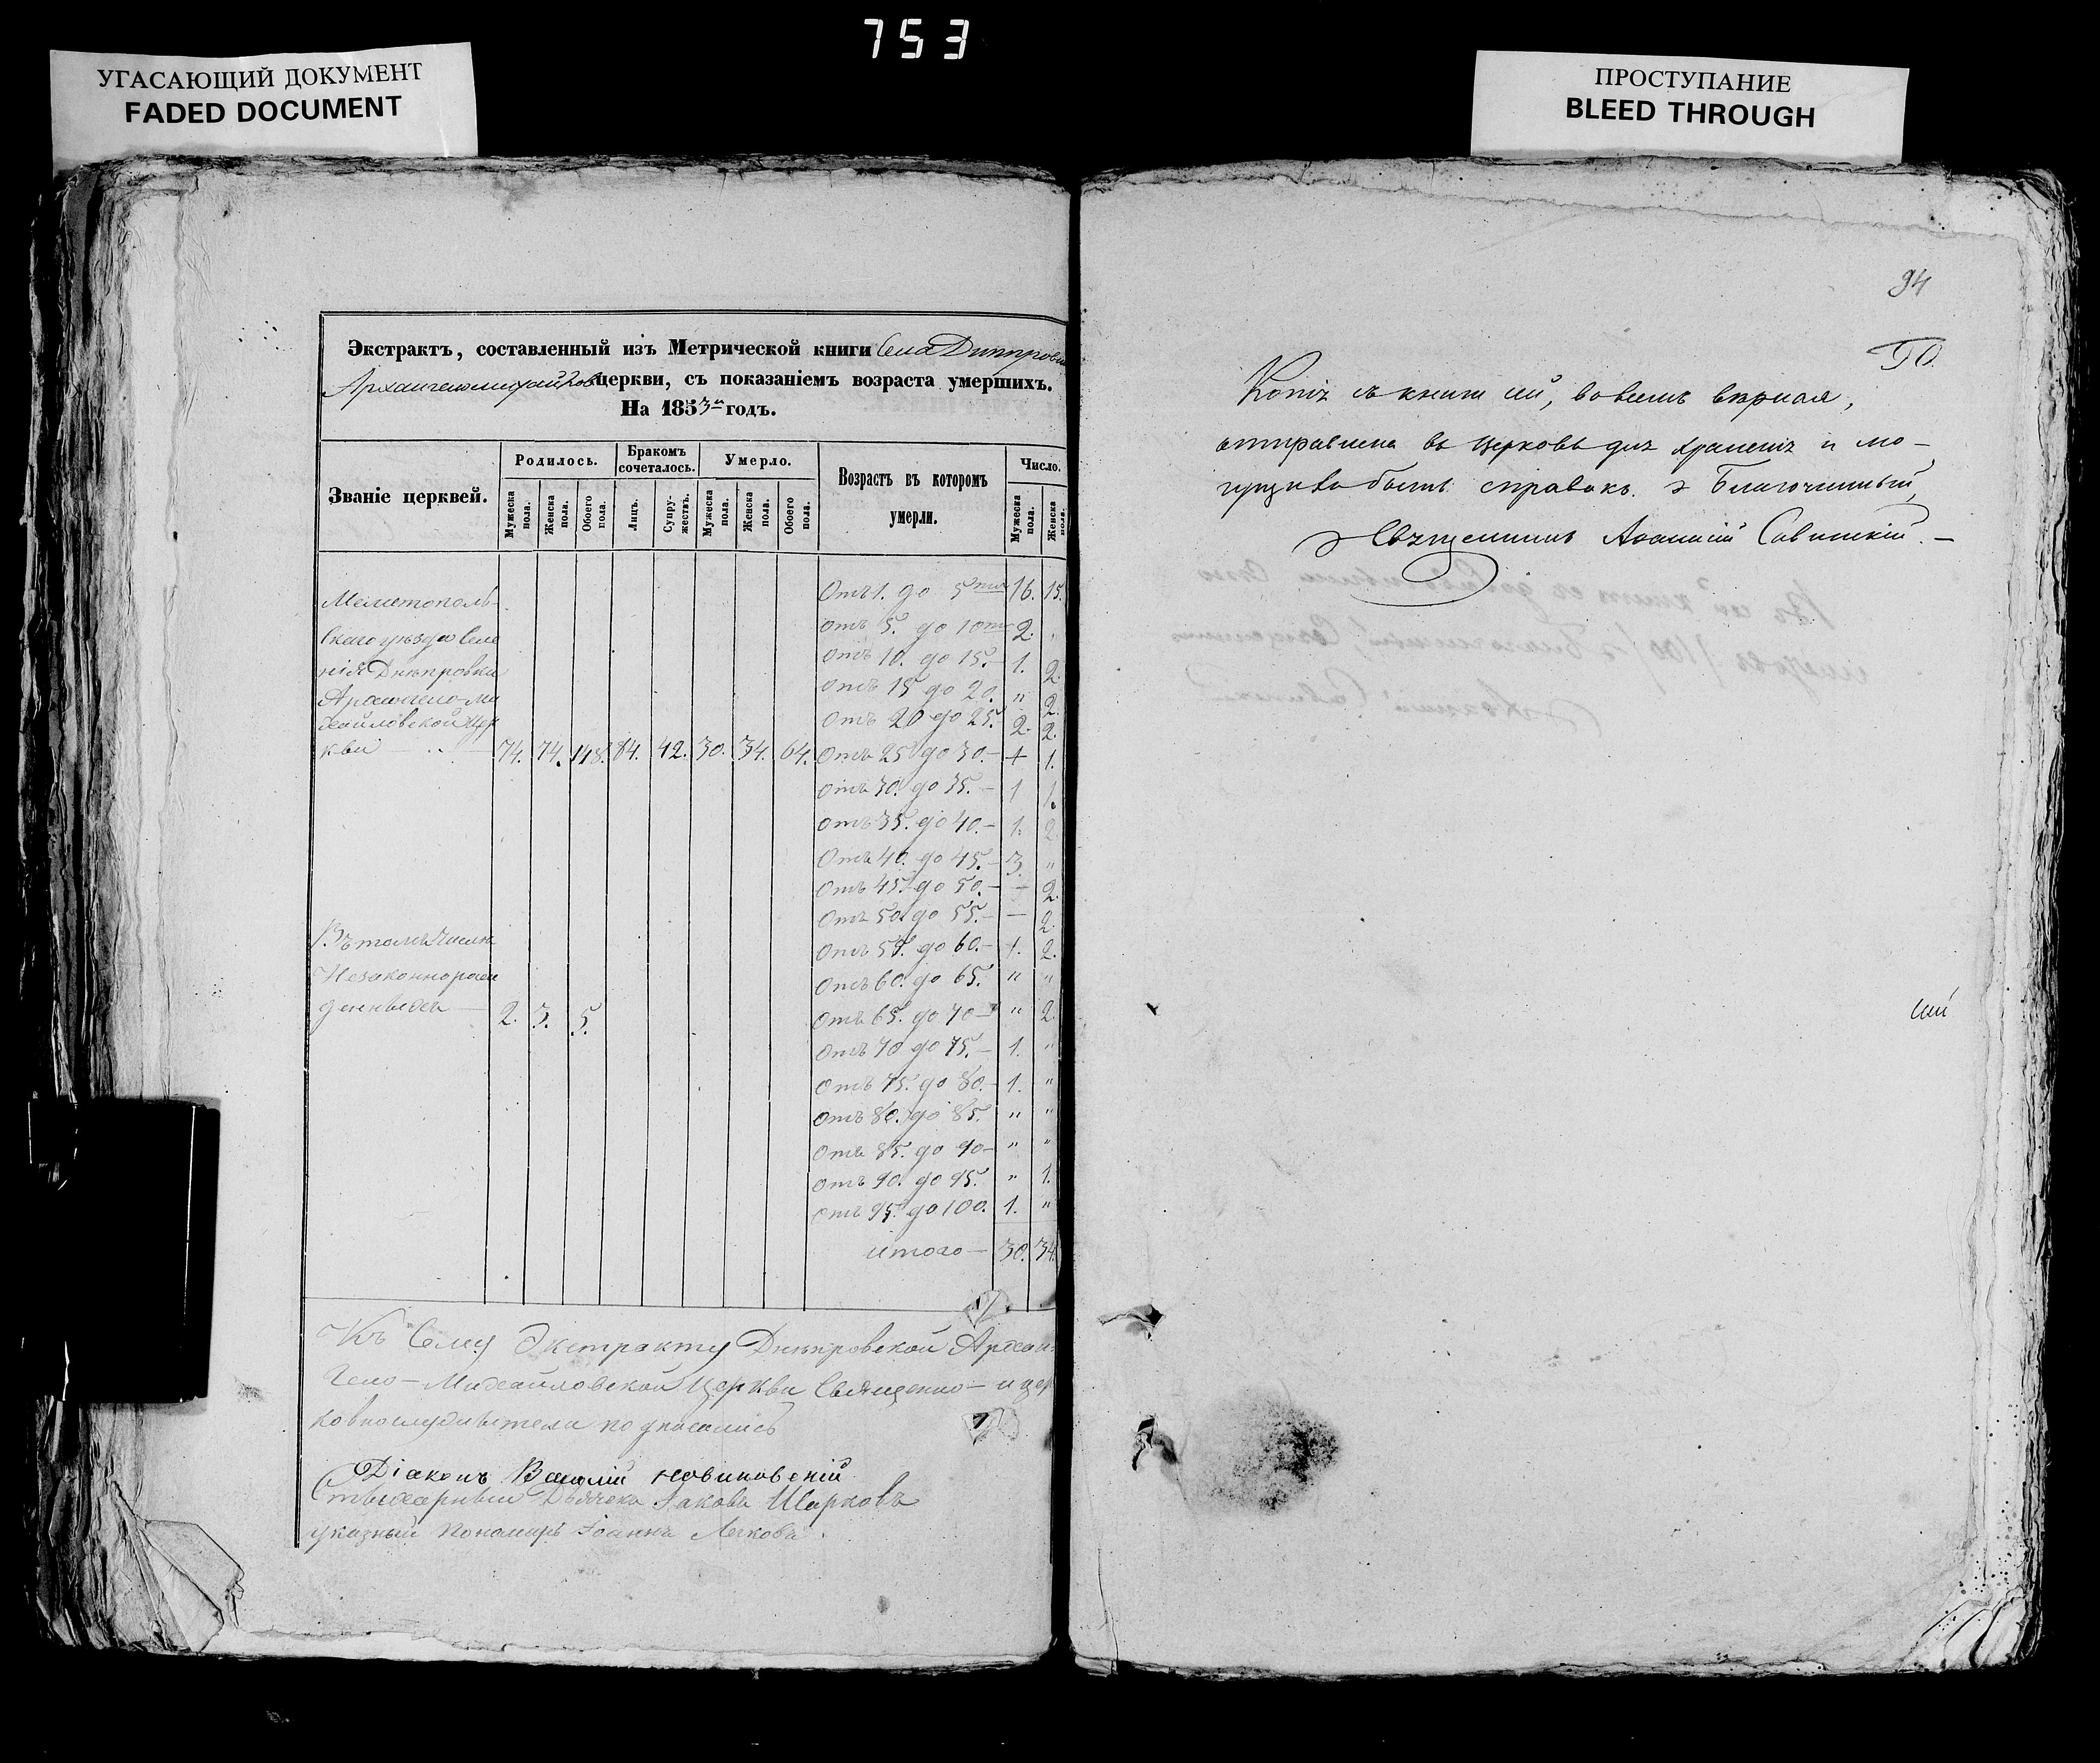 753
УГАСАЮЩИЙ ДОКУМЕНТ
FADED DOCUMENT
ПРОСТУПАНИЕ
BLEED THROUGH
Экстрактъ, составленный изъ Метрической книги Села Днѣпровки
Архангеломихайловской церкви, съ показаніемъ возраста умершихъ.
На 1853й годъ.
Званіе церквей.
Родилось.
Бракомъ сочеталось.
Умерло.
Возрастъ въ которомъ умерли.
Число.
Мужеска пола.
Женска пола.
Обоего пола.
Лицъ.
Супружествъ.
Мужеска пола.
Женска пола.
Обоего пола.
Мужеска пола.
Женска пола.
Мелитополь-
скаго уѣзда Селе
нія Днѣпровки
Архангело-ми
хайловской Цер
кви 74. 74. 148. 84. 42. 30. 34. 64.
Отъ 1. до 5ти 16. 15.
Отъ 5. до 10ти 2. "
Отъ 10. до 15.– 1. 2.
Отъ 15 до 20. " 2.
Отъ 20 до 25. 2. 2.
Отъ 25 до 30.– + 1.
Отъ 30. до 35.– 1 1.
Отъ 35. до 40.– 1. 2
Отъ 40. до 45.– 3. "
Отъ 45. до 50.– – 2.
Отъ 50. до 55.– – 2.
Отъ 55. до 60.– 1. 2.
Отъ 60. до 65. " "
Отъ 65. до 70– " 2.
Отъ 70 до 75.– 1. "
Отъ 75. до 80.– 1. "
Отъ 80. до 85. " "
Отъ 85. до 90– " "
Отъ 90. до 95. " 1.
Отъ 95. до 100. 1. "
Итого – 30. 34.
Въ томъ числѣ
Незаконнорож
денныхъ – 2. 3. 5.
Къ Сему Экстракту Днѣпровской Архан
гело–Михайловской Церкви Священно– и цер
ковнослужители подписались
Діаконъ Василій
Стихарный Дьячекъ Іаковъ Шарковъ
указный Пономарь Іоаннъ Лечковъ.
94
90.
Копія съ книги сей, во всемъ вѣрная,
отправлена въ Церковь для храненія и мо–
гущихъ быть справокъ. Благочинный,
Священникъ Аѳанасій Савинскій.–
сей